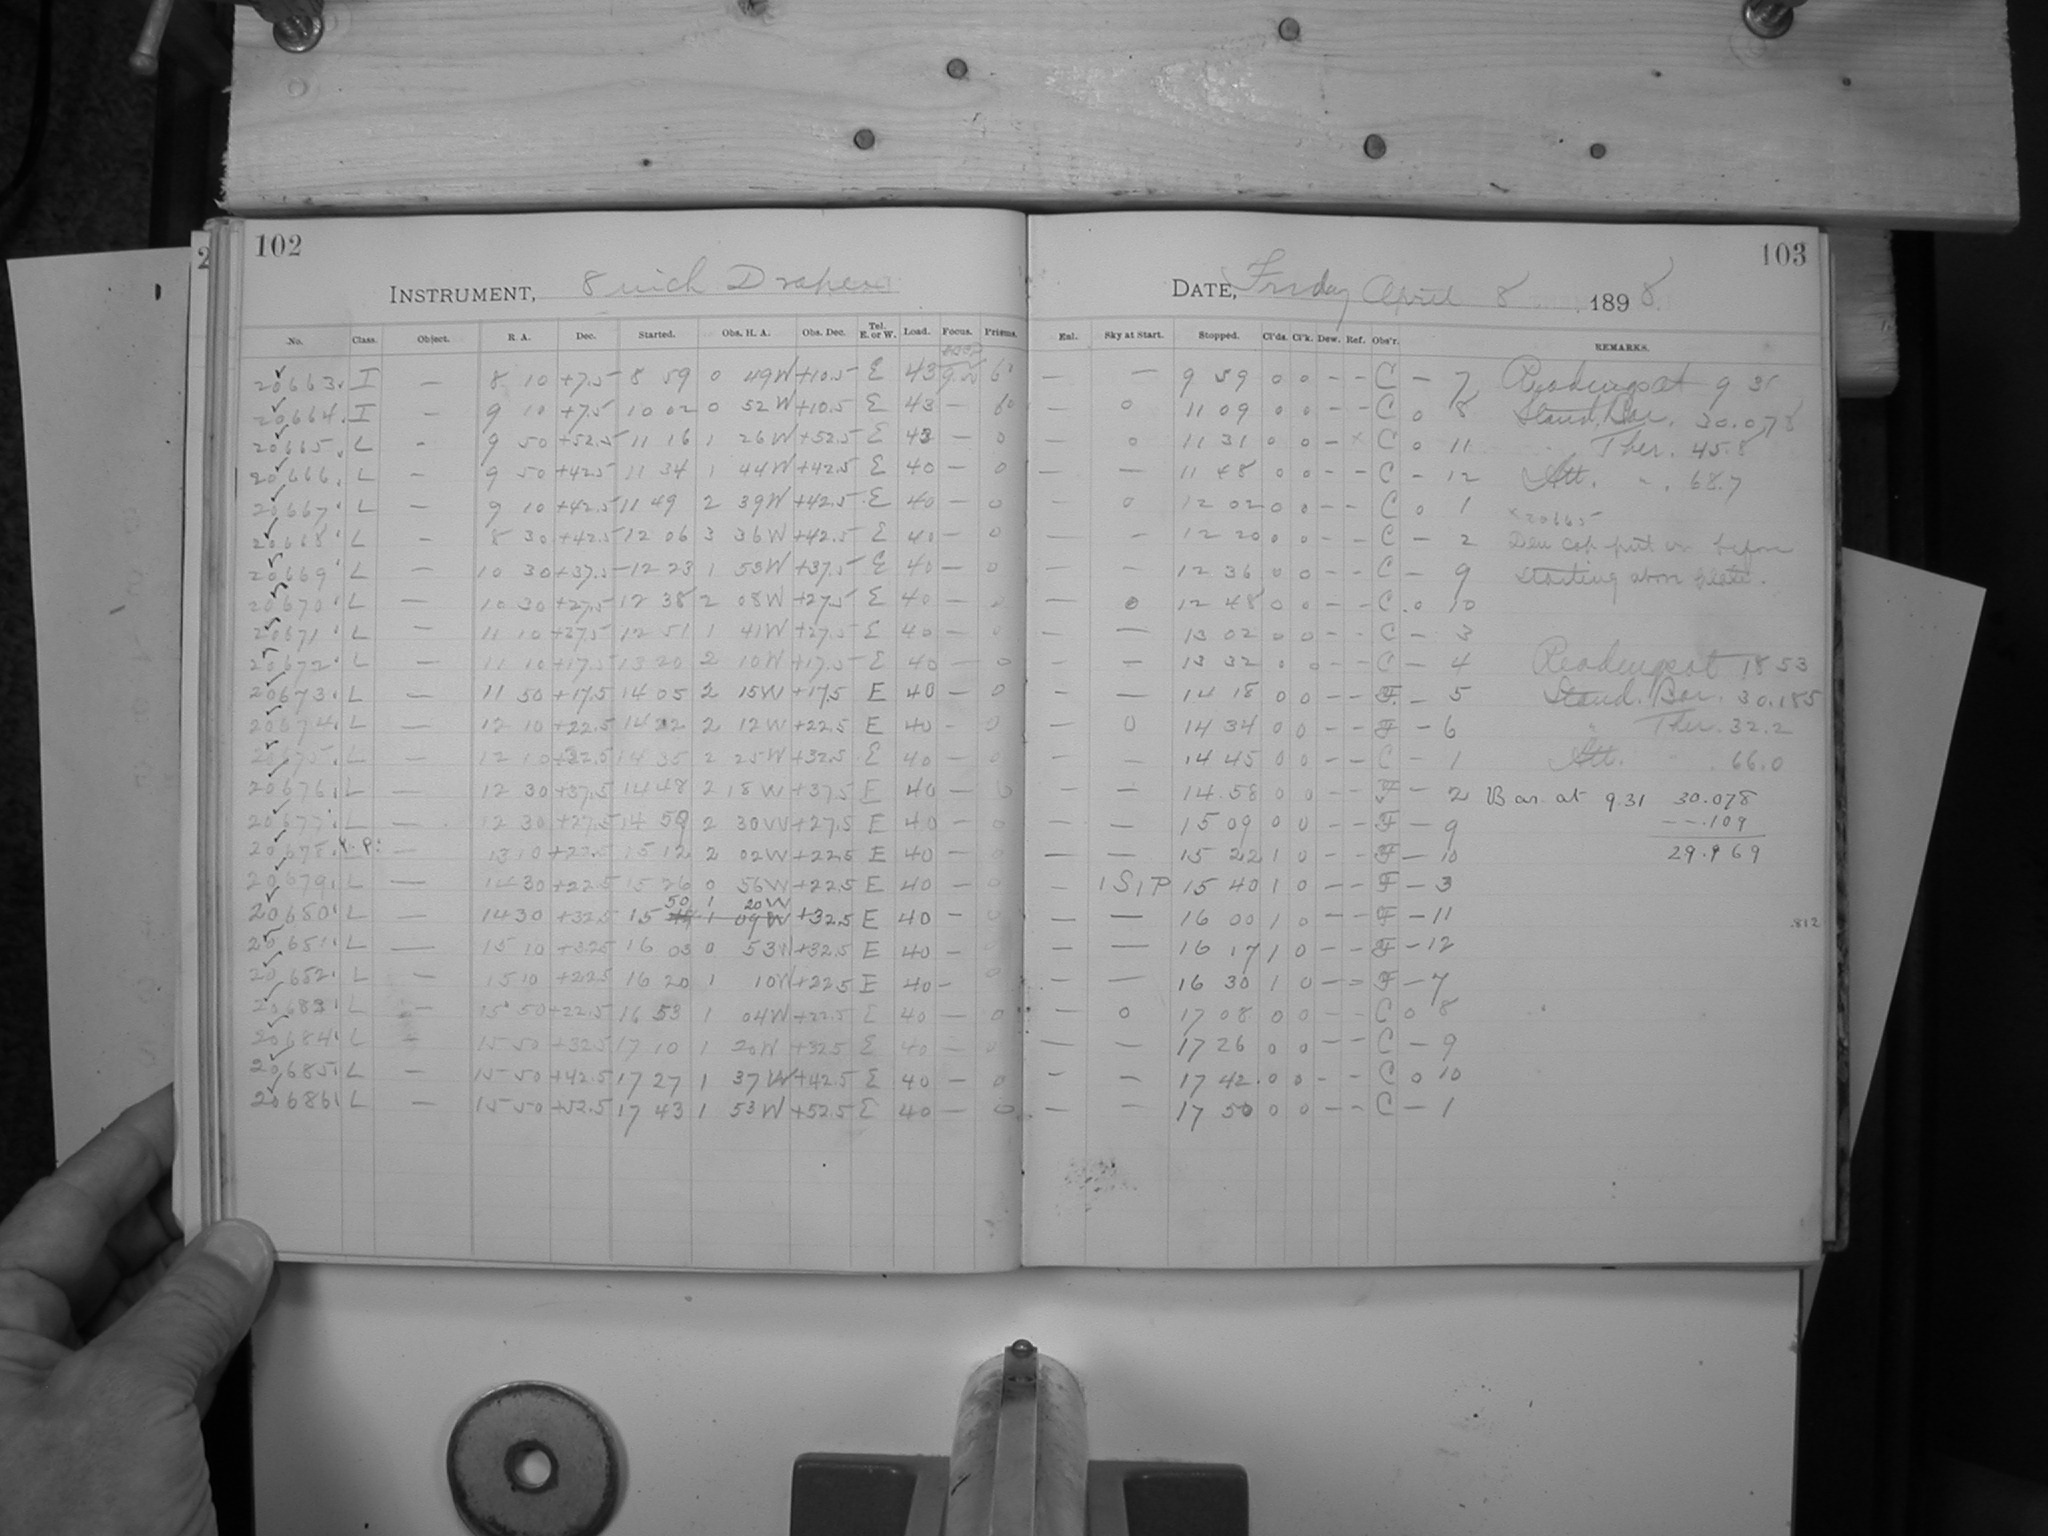 102
INSTRUMENT, 8 inch Draper
No. Class. Object. R. A. Dec. Started. Obs. H. A. Obs. Dec. Tel. E. or W. Load. Focus. Prisms.
20663 I — 8 10 +7.5 8 59 0 49W +10.5 E 43 9.00
20664 I — 9 10 +7.5 10 02 0 52W +10.5 E 43 —
20665 L - 9 50 +52.5 11 16 1 26W +52.5 E 43 — 0
20666 L — 9 50 +42.5 11 34 1 44W +42.5 E 40 — 0
20667 L — 9 10 +42.5 11 49 2 39W +42.5 E 40 — 0
20668 L — 8 30 +42.5 12 06 3 36W +42.5 E 40 — 0
20669 L — 10 30 +37.5 12 23 1 53W +37.5 E 40 — 0
20670 L — 10 30 +27.5 12 38 2 08W +27.5 E 40 — 0
20671 L — 11 10 +27.5 12 51 1 41W +27.5 E 40 — 0
20672 L — 11 10 +17.5 13 20 2 10W +17.5 E 40 — 0
20673 L — 11 50 +17.5 14 05 2 15W +17.5 E 40 — 0
20674 L — 12 10 +22.5 14 22 2 12W +22.5 E 40 - 0
20675 L — 12 10 +32.5 14 35 2 25W +32.5 E 40 — 0
20676 L — 12 30 +37.5 14 48 2 18W +37.5 E 40 — 0
20677 L — 12 30 +27.5 14 59 2 30W +27.5 E 40 — 0
20678 — 13 10 +22.5 15 12 2 02W +22.5 E 40 0
20679 L — 14 30 +22.5 15 26 0 56W +22.5 E 40 — 0
50 1 20W
20680 L — 14 30 +32.5 15 1 09W +32.5 E 40 — 0
20681 L — 15 10 +32.5 16 03 0 53W +32.5 E 40 —
20682 L — 15 10 +22.5 16 20 1 10W +22.5 E 40 - 0
20683 L — 15 50 +22.5 16 53 1 04W +22.5 E 40 — 0
20684 L - 15 50 +32.5 17 10 1 20W +32.5 E 40 — 0
20685 L — 15 50 +42.5 17 27 1 37W +42.5 E 40 — 0
20686 L — 15 50 +52.5 17 43 1 53W +52.5 E 40 — 0
103
DATE, Friday April 8 1898
Enl. Sky at Start. Stopped. Cl'ds. Cl'k. Dew. Ref. Obs'r. REMARKS.
— — 9 59 0 0 - - C - 7 Readings at 9 31
— 0 11 09 0 0 - - C 0 8 Stand. Bar. 30.078
— 0 11 31 0 0 - x C 0 11 Ther. 45.8
— — 11 48 0 0 - - C - 12 Att. " . 68.7
- 0 12 02 0 0 - - C 0 1 x 20665
— - 12 20 0 0 - - C - 2 Dew cap put on before
- - 12 36 0 0 - - C - 9 starting above plate.
— 0 12 48 0 0 - - C 0 10
— — 13 02 0 0 - - C - 3
— — 13 32 0 0 - - C - 4 Readings at 18 53
— — 14 18 0 0 - - F - 5 Stand. Bar. 30.185
— 0 14 34 0 0 - - F - 6 " Ther. 32.2
— - 14 45 0 0 - - C - 1 Att. " . 66.0
- - 14.58 0 0 - - F - 2 Bar. at 9.31 30.078
— — 15 09 0 0 - - F - 9 --.109
— — 15 22 1 0 - - F - 10 29.969
- 1S1P 15 40 1 0 - - F - 3
— — 16 00 1 0 - - F - 11 .812
— — 16 17 1 0 - - F - 12
- — 16 30 1 0 - - F - 7
— 0 17 08 0 0 - - C 0 8
— — 17 26 0 0 - - C - 9
- — 17 42 0 0 - - C 0 10
— — 17 50 0 0 - - C - 1